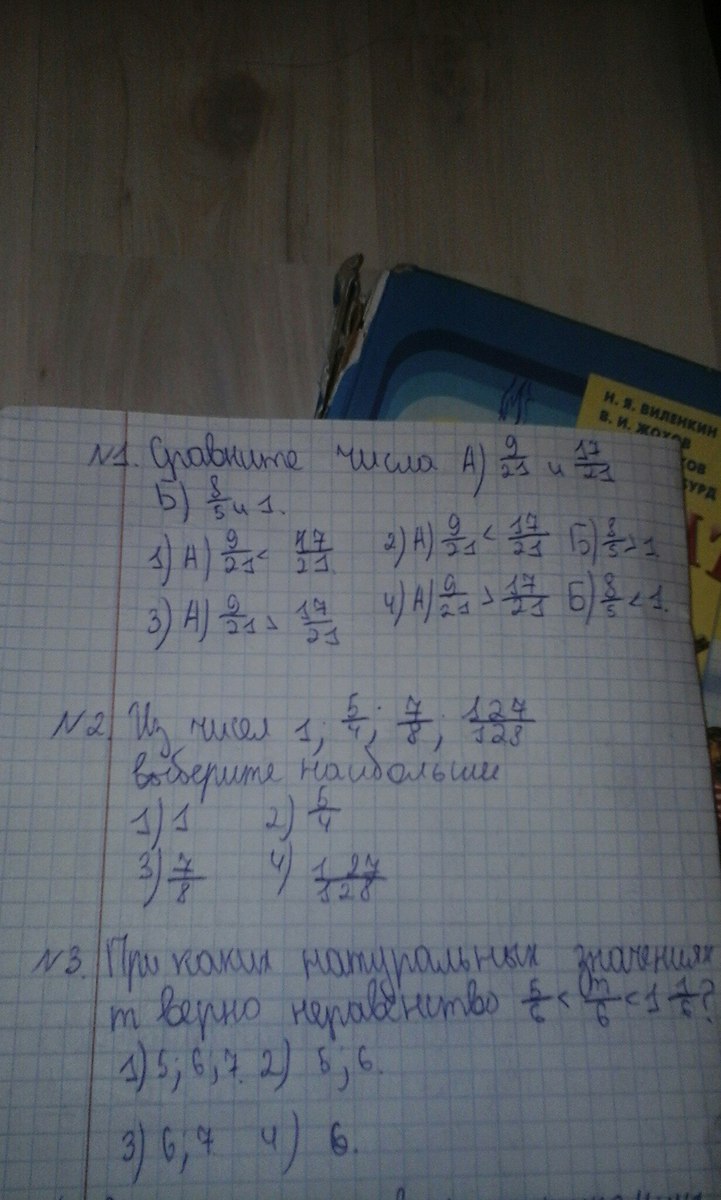 Н. Я. ВИЛЕНКИН
В. И. ЖОХОВ
ОВ
БУРД
№1. Сравните числа А) 9/21 и 17/21
Б) 8/5 и 1.
1) А) 9/21 < 17/21 2) А) 9/21 < 17/21 Б) 8/5 > 1.
3) А) 9/21 > 17/21 4) А) 9/21 > 17/21 Б) 8/5 < 1.
№2. Из чисел 1; 5/4; 7/8; 127/128
выберите наибольши
1) 1 2) 5/4
3) 7/8 4) 127/128
№3. При каких натуральных значениях
m верно неравенство 5/6 < m/6 < 1 1/6?
1) 5; 6; 7. 2) 5; 6.
3) 6; 7 4) 6.